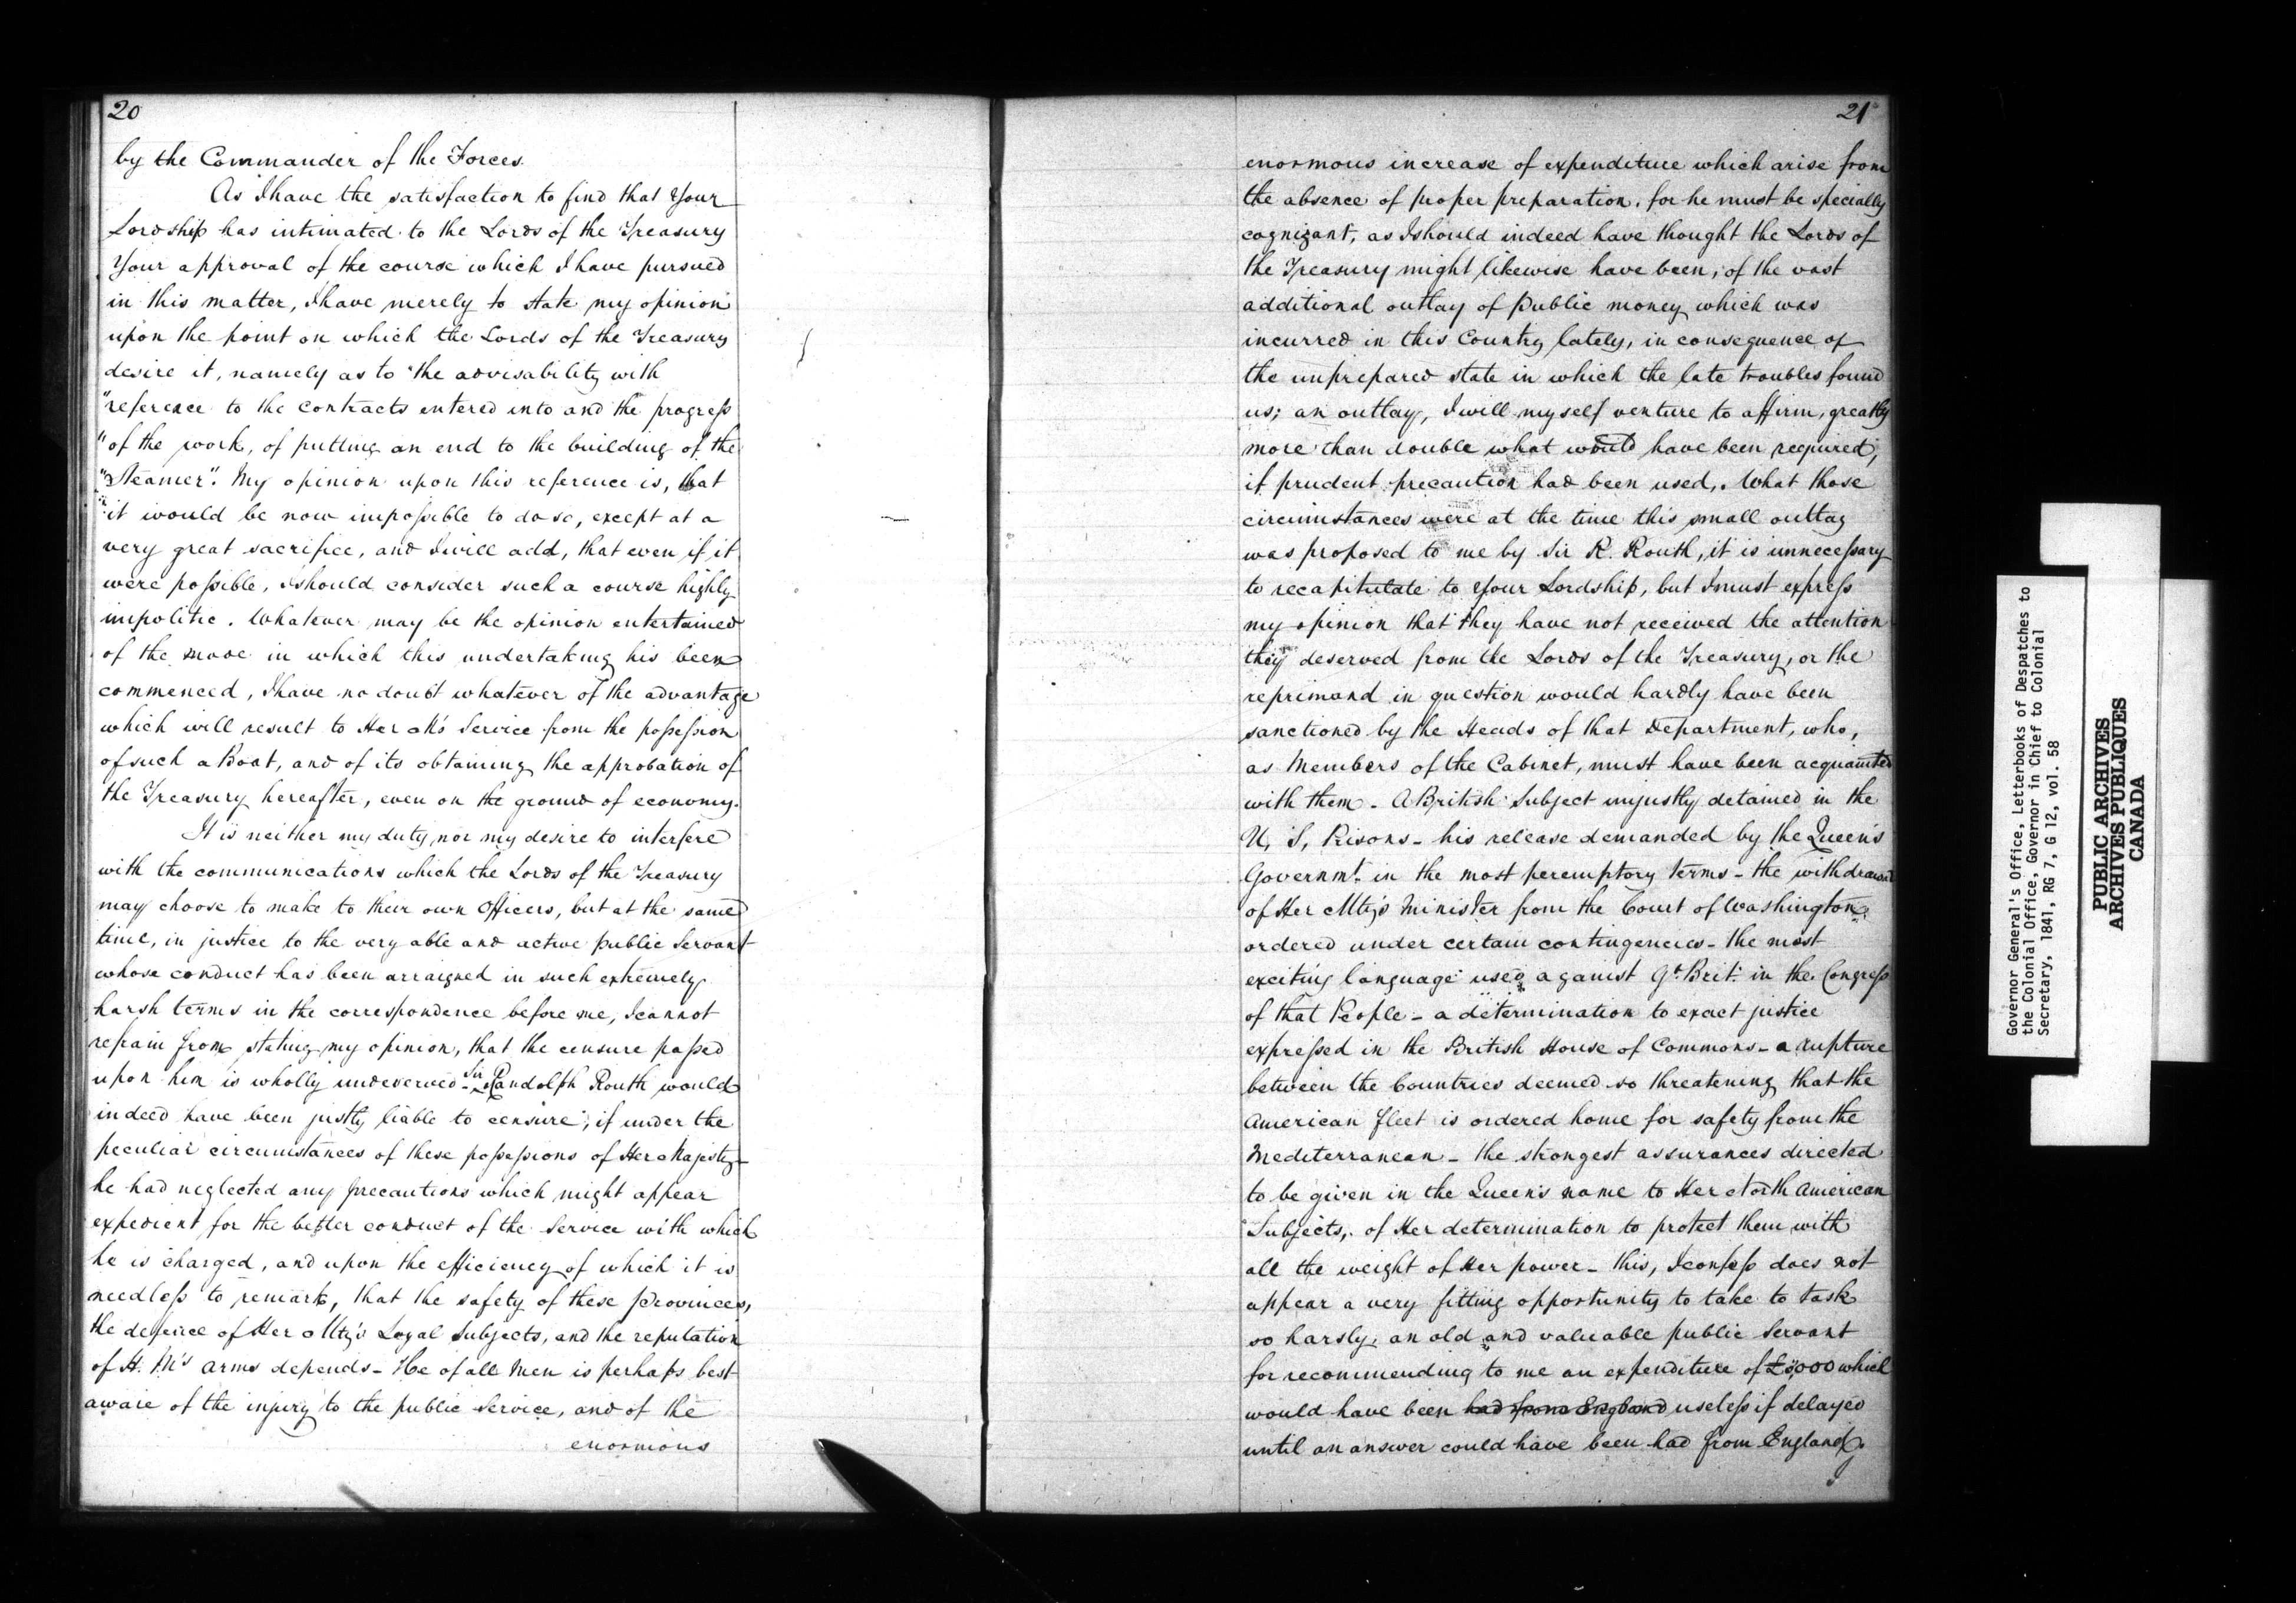 20
by the Commander of the Forces.
As I have the satisfaction to find that Your
Lordship has intimated to the Lords of the Treasury
Your approval of the course which I have pursued
in this matter, I have merely to state my opinion
upon the point on which the Lords of the Treasury
desire it, namely as to "the advisability with
"reference to the contracts entered into and the progress
"of the work, of putting an end to the building of the
"Steamer". My opinion upon this reference is, that
"it would be now impossible to do so, except at a
very great sacrifice, and I will add, that even if it
were possible, I should consider such a course highly
impolitic. Whatever may be the opinion entertained
of the mode in which this undertaking his been
commenced, I have no doubt whatever of the advantage
which will result to Her M's Service from the possession
of such a Boat, and of its obtaining the approbation of
the Treasury hereafter, even on the ground of economy.
It is neither my duty nor my desire to interfere
with the communications which the Lords of the Treasury
may choose to make to their own Officers, but at the same
time, in justice to the very able and active public Servant
whose conduct has been arraigned in such extremely
harsh terms in the correspondence before me, I cannot
refrain from stating my opinion, that the censure passed
upon him is wholly undeserved - Sir Randolph Routh would
indeed have been justly liable to censure, if under the
peculiar circumstances of these possessions of Her Majesty
he had neglected any precautions which might appear
expedient for the better conduct of the Service with which
he is charged, and upon the efficiency of which it is
needless to remark, that the safety of these Provinces,
the defence of Her Mty's Loyal Subjects, and the reputation
of H. M's arms depends - He of all Men is perhaps best
aware of the injury to the public Service, and of the
enormous
21
enormous increase of expenditure which arise from
the absence of proper preparation, for he must be specially
cognizant, as I should indeed have thought the Lords of
the Treasury might likewise have been, of the vast
additional outlay of public money which was
incurred in this Country lately, in consequence of
the unprepared state in which the late troubles found
us; an outlay, I will myself venture to affirm, greatly
more than double what would have been required,
if prudent precaution had been used. What those
circumstances were at the time this small outlay
was proposed to me by Sir R. Routh, it is unnecessary
to recapitulate to Your Lordship, but I must express
my opinion that they have not received the attention
they deserved from the Lords of the Treasury, or the
reprimand in question would hardly have been
sanctioned by the Heads of that Department, who,
as Members of the Cabinet, must have been acquainted
with them - A British Subject unjustly detained in the
U, S, Prisons - his release demanded by the Queen's
Governmt. in the most peremptory terms - the withdrawal
of Her Mty's Minister from the Court of Washington
ordered under certain contingencies - the most
exciting language used aganist Gt. Brit: in the Congress
of that People - a determination to exact justice
expressed in the British House of Commons - a rupture
between the Countries deemed so threatening that the
American fleet is ordered home for safety from the
Mediterranean - the strongest assurances directed
to be given in the Queen's name to Her North American
Subjects, of Her determination to protect them with
all the weight of Her power - this, I confess does not
appear a very fitting opportunity to take to task
so harsly, an old and valuable public Servant
for recommending to me an expenditure of which
would have been had from England useless if delayed
until an answer could have been had from England
Governor General's Office, Letterbooks of Despatches to
the Colonial Office, Governor in Chief to Colonial
Secretary, 1841, RG 7, G 12, vol. 58
PUBLIC ARCHIVES
ARCHIVES PUBLIQUES
CANADA